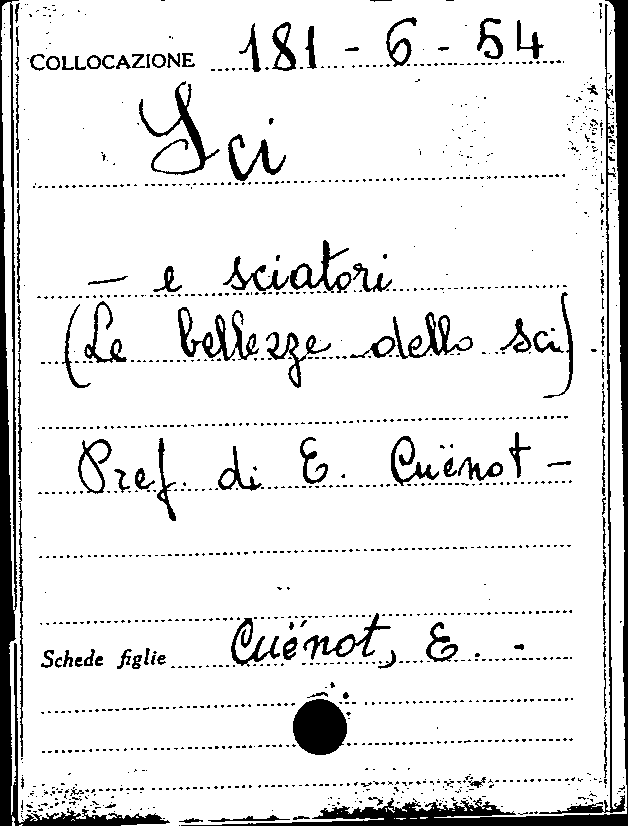 COLLOCAZIONE 181 - 6 - 54
Sci
— e sciatori
(Le bellezze dello sci).
Pref. di E. Cuënot —
Schede figlie Cuënot, E. -